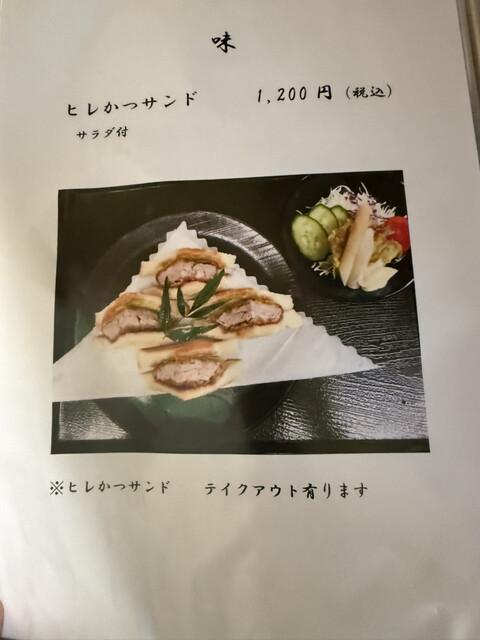 味
ヒレかつサンド 1,200円（税込）
サラダ付
※ヒレかつサンド テイクアウト有ります